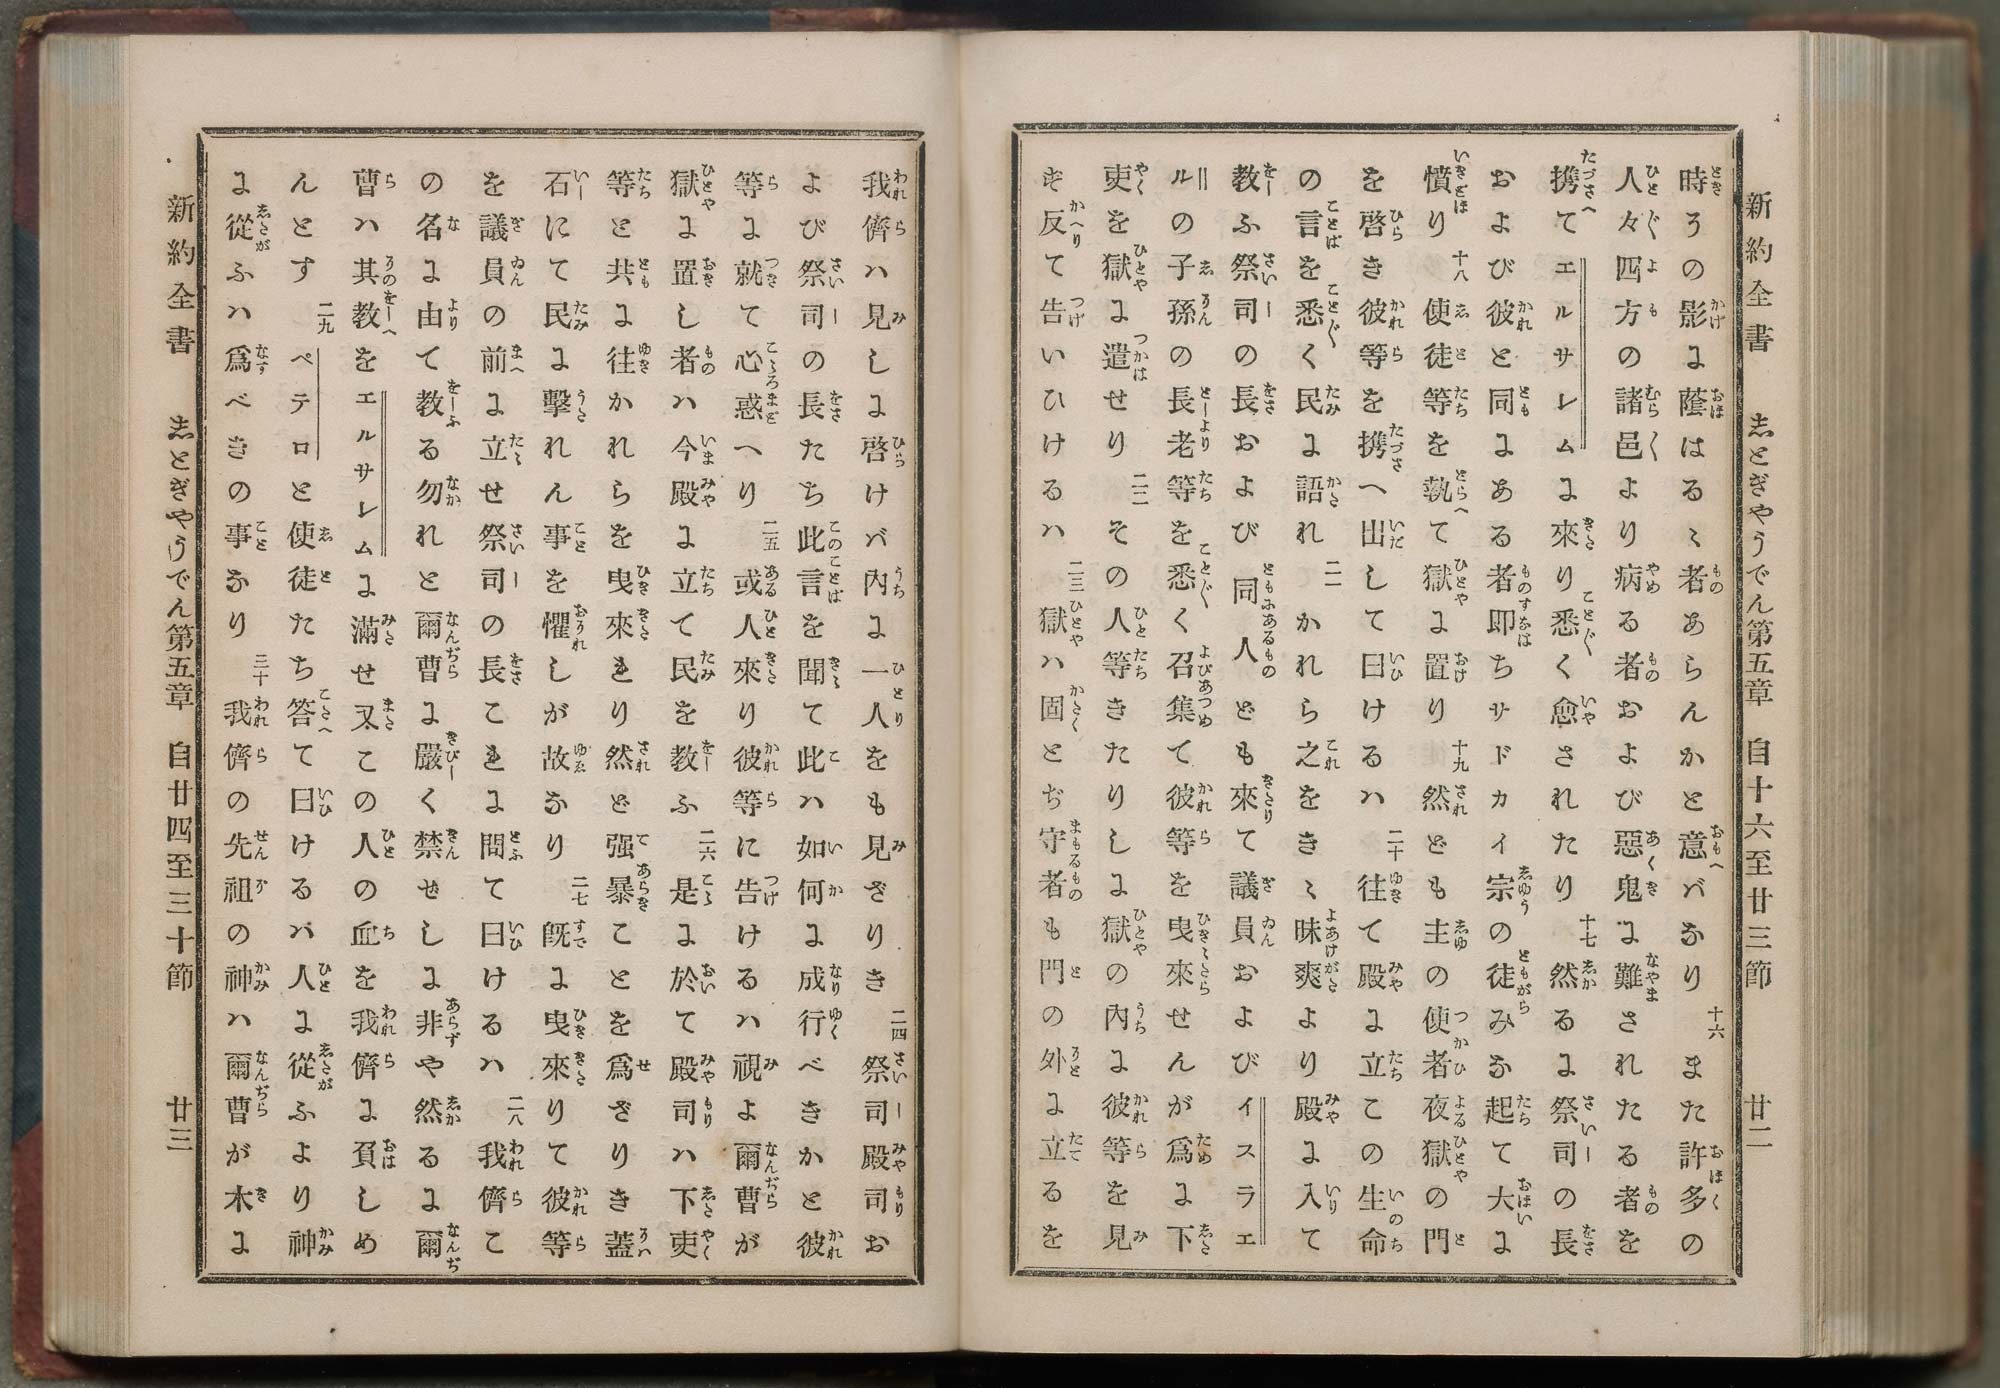 新約全書　志とぎやうでん第五章　自十六至廿三節　廿二
時ろの影に蔭はるゝ者あらんかと意バなり 十六 また許多の
人々四方の諸邑より病る者および惡鬼に難されたる者を
携てエルサレムに來り悉く愈されたり 十七 然るに祭司の長
および彼と同にある者即ちサドカイ宗の徒みな起て大に
憤り 十八 使徒等を執て獄に置り 十九 然ども主の使者夜獄の門
を啓き彼等を携へ出して曰けるハ 二十 往て殿に立この生命
の言を悉く民に語れ 二一 かれら之をきゝ昧爽より殿に入て
教ふ祭司の長および同人ども來て議員およびイスラエ
ル＝の子孫の長老等を悉く召集て彼等を曳來せんが爲に下
吏を獄に遣せり 二二 その人等きたりしに獄の内に彼等を見
ず反て告いひけるハ 二三 獄ハ固とぢ守者も門の外に立るを
新約全書　志とぎやうでん第五章　自廿四至三十節　廿三
我儕ハ見しに啓けバ内に一人をも見ざりき 二四 祭司殿司お
よび祭司の長たち此言を聞て此ハ如何に成行べきかと彼
等に就て心惑へり 二五 或人來り彼等に告けるハ視よ爾曹が
獄に置し者ハ今殿に立て民を教ふ 二六 是に於て殿司ハ下吏
等と共に往かれらを曳來れり然ど强暴ことを爲ざりき蓋
石にて民に擊れん事を懼しが故なり 二七 既に曳來りて彼等
を議員の前に立せ祭司の長これに問て曰けるハ 二八 我儕こ
の名に由て教る勿れと爾曹に嚴く禁せしに非や然るに爾
曹ハ其教をエルサレムに滿せ又この人の血を我儕に負しめ
んとす 二九 ペテロと使徒たち答て曰けるハ人に從ふより神
に從ふハ爲べきの事なり 三十 我儕の先祖の神ハ爾曹が木に